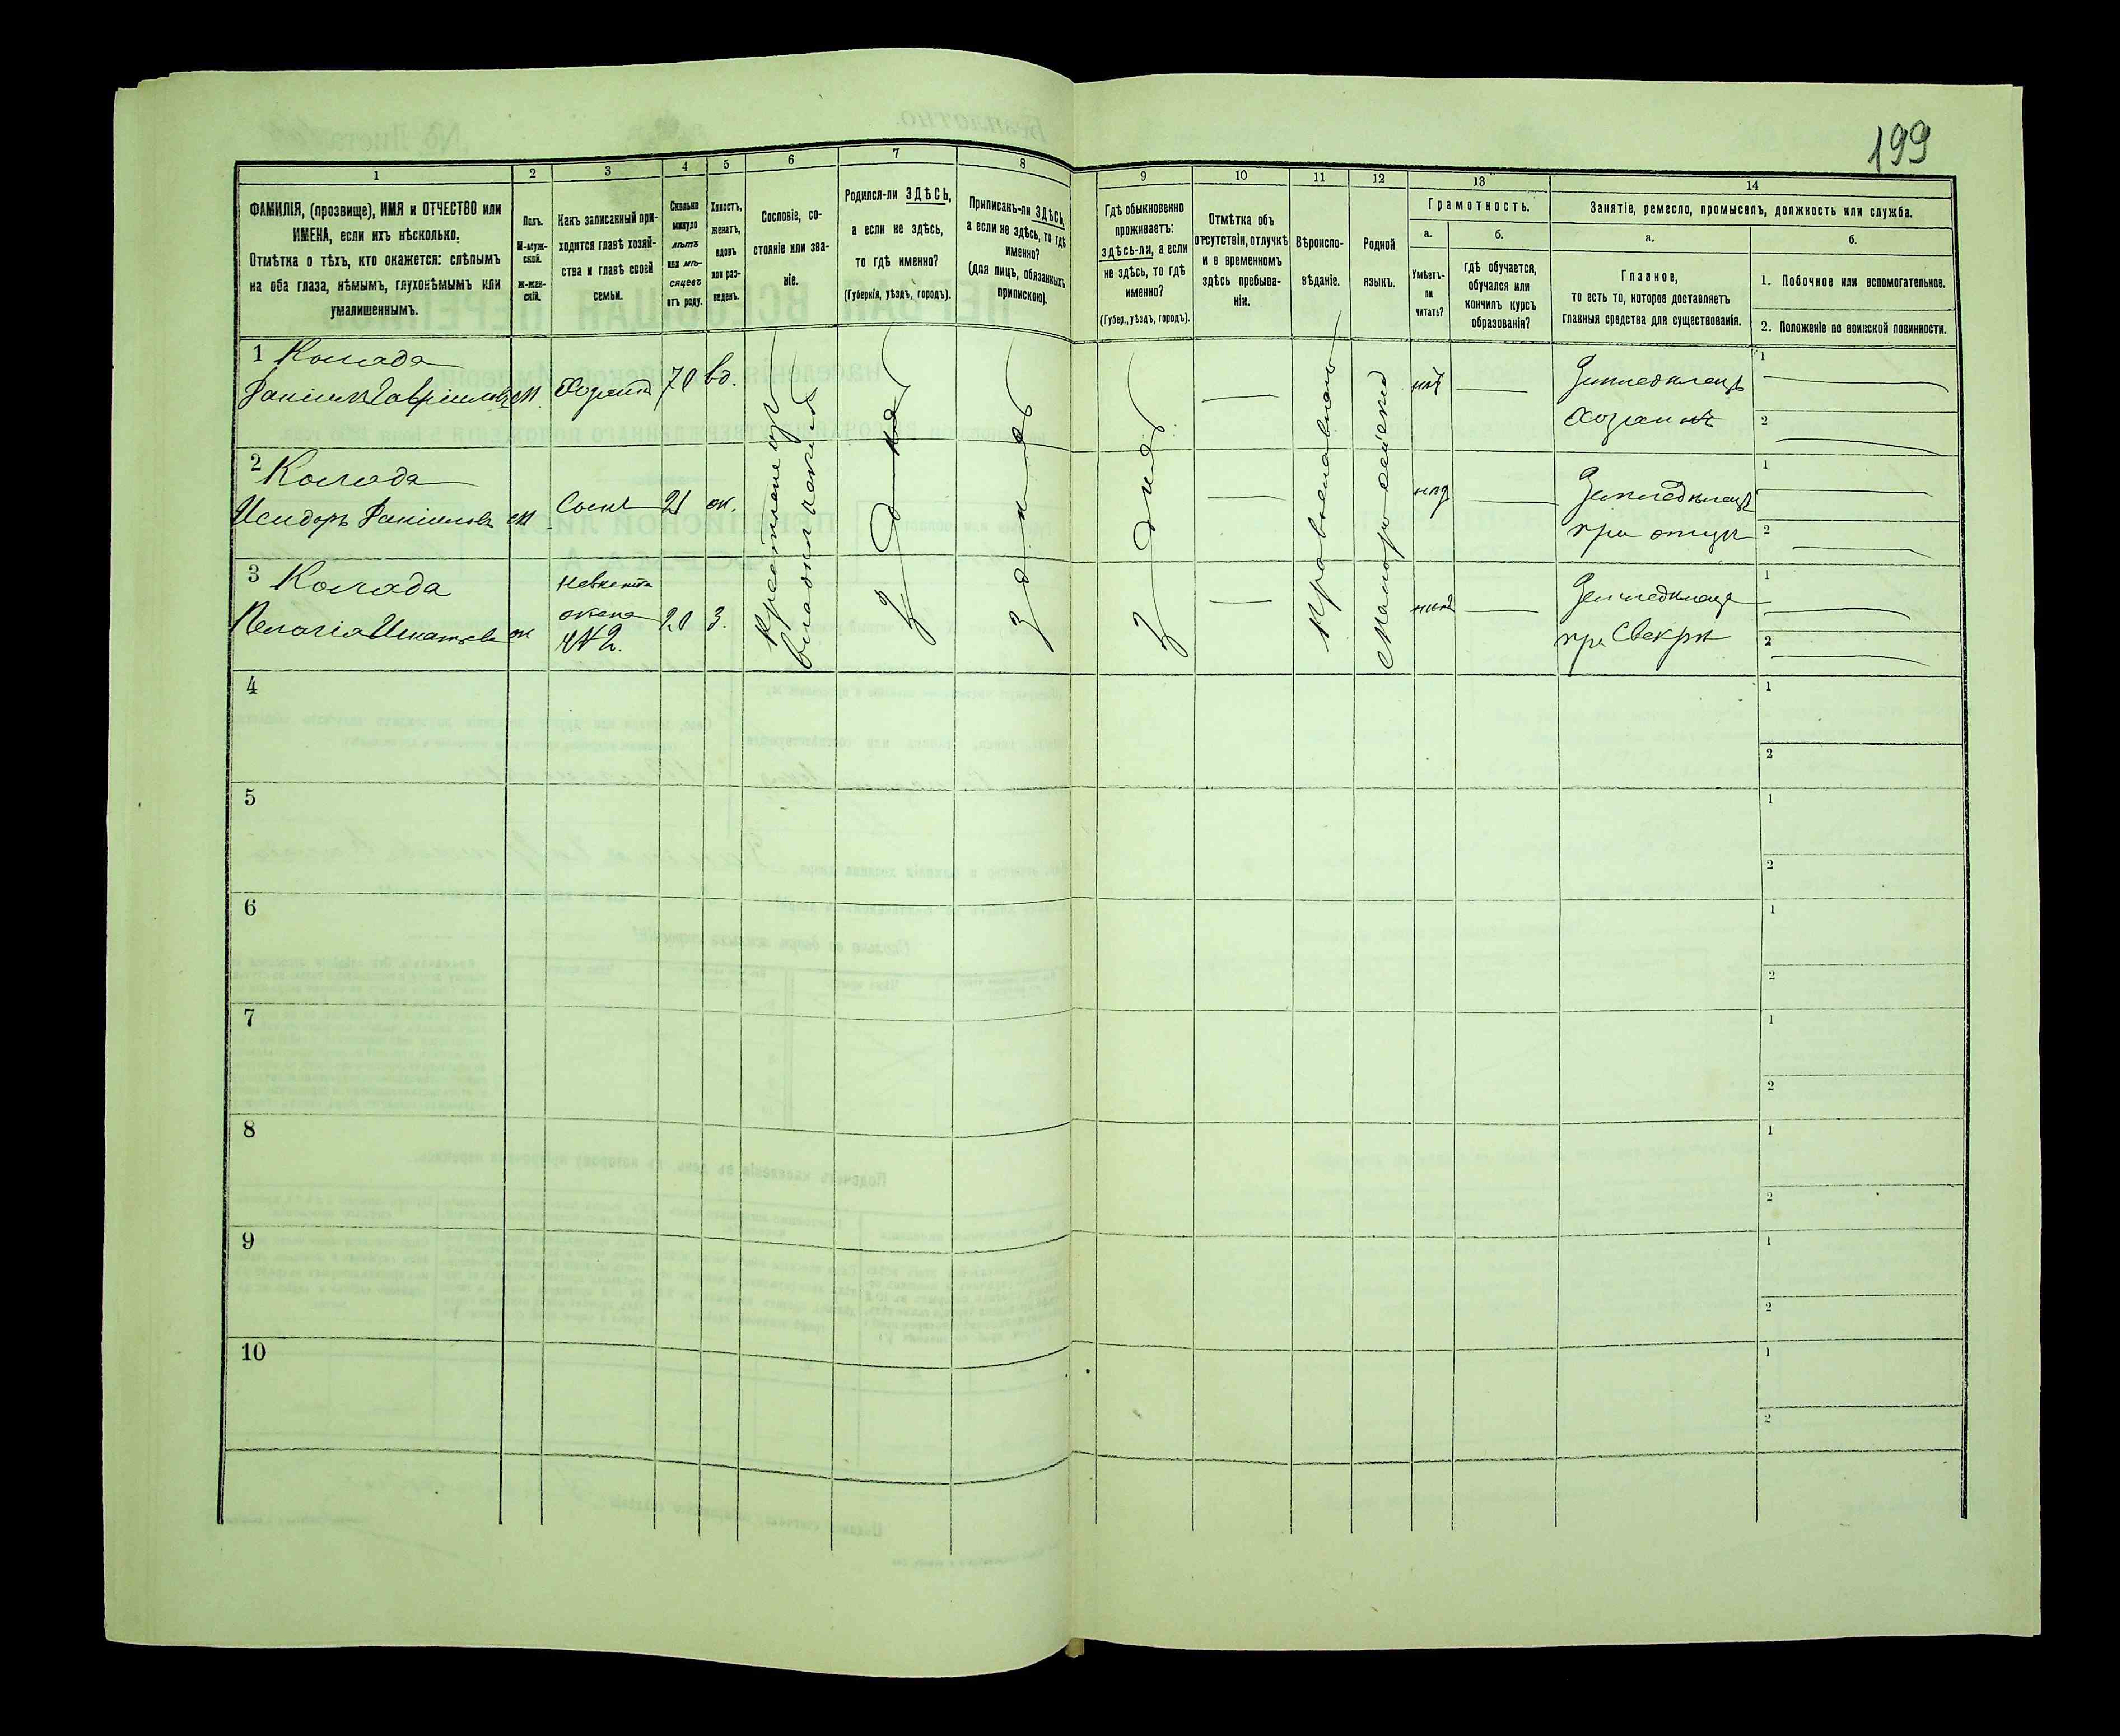 199
1
2
3
4
5
6
7
8
9
10
11
12
13
14
ФАМИЛІЯ, (прозвище), ИМЯ и ОТЧЕСТВО или
ИМЕНА, если ихъ нѣсколько.
Отмѣтка о тѣхъ, кто окажется: слѣпымъ
на оба глаза, нѣмымъ, глухонѣмымъ или
умалишеннымъ.
Полъ.
М-муж-
ской.
Ж-жен-
скій.
Какъ записанный при-
ходится главѣ хозяй-
ства и главѣ своей
семьи.
Сколько
минуло
лѣтъ
или мѣ-
сяцевъ
отъ роду.
Холостъ,
женатъ,
вдовъ
или раз-
веденъ.
Сословіе, со-
стояніе или зва-
ніе.
Родился-ли ЗДѢСЬ,
а если не здѣсь,
то гдѣ именно?
(Губернія, уѣздъ, городъ).
Приписанъ-ли ЗДѢСЬ,
а если не здѣсь, то гдѣ
именно?
(для лицъ, обязанныхъ
припискою).
Гдѣ обыкновенно
проживаетъ:
здѣсь-ли, а если
не здѣсь, то гдѣ
именно?
(Губер., уѣздъ, городъ).
Отмѣтка объ
отсутствіи, отлучкѣ
и о временномъ
здѣсь пребыва-
ніи.
Вѣроиспо-
вѣданіе.
Родной
языкъ.
Грамотность.
а.
Умѣетъ-
ли
читать?
б.
гдѣ обучается,
обучался или
кончилъ курсъ
образованія?
Занятіе, ремесло, промыселъ, должность или служба.
а.
Главное,
то есть то, которое доставляетъ
главныя средства для существованія.
б.
1. Побочное или вспомогательное.
2. Положеніе по воинской повинности.
1 Коляда
Даніилъ Гавріиловъ м. Хозяинъ 70 вд. нѣтъ Земледѣлецъ 1
хозяинъ 2
2 Коляда
Исидоръ Даніиловъ м Сынъ 21 ж. нѣтъ Земледѣлецъ 1
при отцѣ 2
3 Коляда
Пелагія Игнатьева ж Невѣстка
жена
№ 2. 20 з. нѣтъ Земледѣлецъ 1
при свекрѣ 2
Здѣсь
Здѣсь
Здѣсь
Православное
Малороссійскій
4 1
2
5 1
2
6 1
2
7 1
2
8 1
2
9 1
2
10 1
2